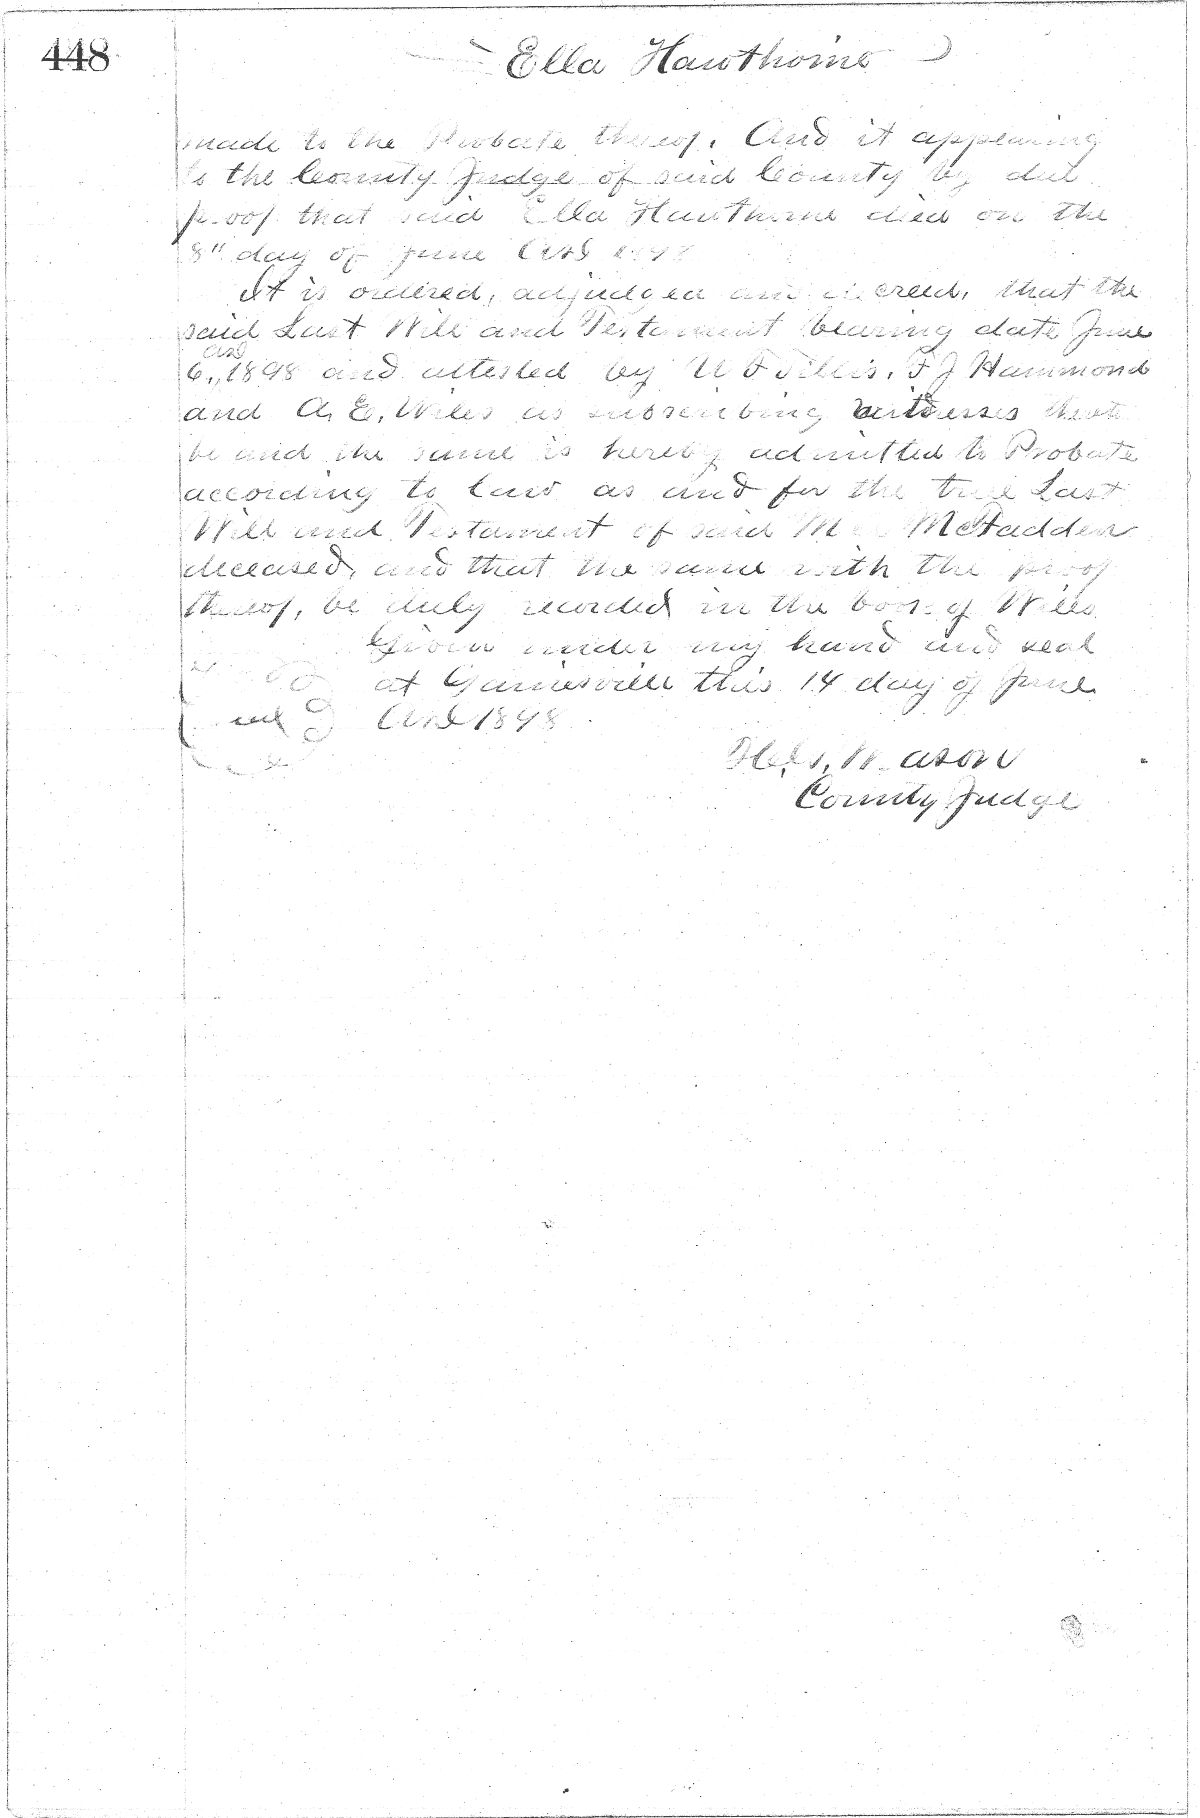 448
Ella Hawthorne
made to the Probate thereof. And it appearing
to the County Judge of said County by due
proof that said Ella Hawthorne died on the
8" day of June AD 1898
It is ordered, adjudged and decreed, that the
said Last Will and Testament bearing date June
AD
6., 1898 and attested by W F Tillis, F J Hammond
and A. E. Wiles as subscribing witnesses thereto
be and the same is hereby admitted to Probate
according to law as and for the true Last
Will and Testament of said McFadden
deceased, and that the same with the proof
thereof, be duly recorded in the book of Wills
Given under my hand and seal
at Gainesville this 14 day of June
seal AD 1898
Mason
County Judge